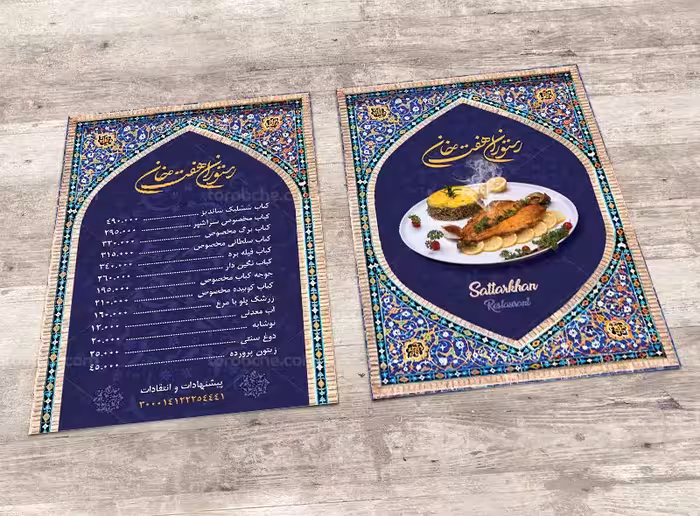 رستوران هفت خان
کباب ششلیک شاندیز ........ ۴۹۰.۰۰۰
کباب مخصوص سرآشپز ........ ۲۹۵.۰۰۰
کباب برگ مخصوص ........ ۳۲۰.۰۰۰
کباب سلطانی مخصوص ........ ۳۱۵.۰۰۰
کباب فیله بره ........ ۳۴۰.۰۰۰
کباب نگین دار ........ ۲۶۰.۰۰۰
جوجه کباب مخصوص ........ ۱۹۵.۰۰۰
کباب کوبیده مخصوص ........ ۲۱۰.۰۰۰
زرشک پلو با مرغ ........ ۱۶۰.۰۰۰
آب معدنی ........ ۱۲.۰۰۰
نوشابه ........ ۲۰.۰۰۰
دوغ سنتی ........ ۲۵.۰۰۰
زیتون پرورده ........ ۴۵.۰۰۰
پیشنهادات و انتقادات
۳۰۰۰۱۴۱۲۲۲۵۴۴۴۱
رستوران هفت خان
Sattarkhan
Restaurant